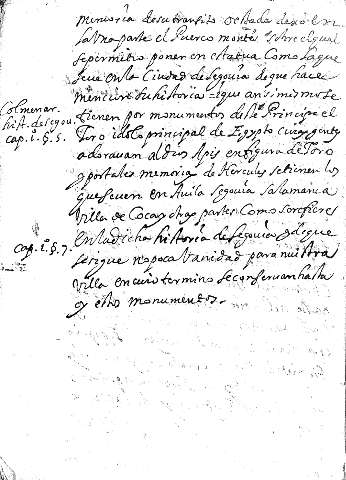 memoria de su transito
La una parte el Puerco montes sobre el qual
se permitio poner en estatua Como la que
se ve en la Ciudad de Segovia de que hace
mencion su historia i que ansimismo se
tienen por monumentos deste Principe el
Toro idolo principal de Egypto cuias gentes
adoravan al dios Apis en figura de Toro
y por tales memoria de Hercules se tienen los
que se ven en Avila Segovia Salamanca
Villa de Coca y otras partes Como se refiere
en la dicha historia de Segovia de que
se sigue no poca Vanidad para nuestra
Villa en cuio termino se conservan hasta
oy estos monumentos.
Colmenar.
hist. de Segou.
cap. 1. §. 5.
Cap. 1. §. 7.